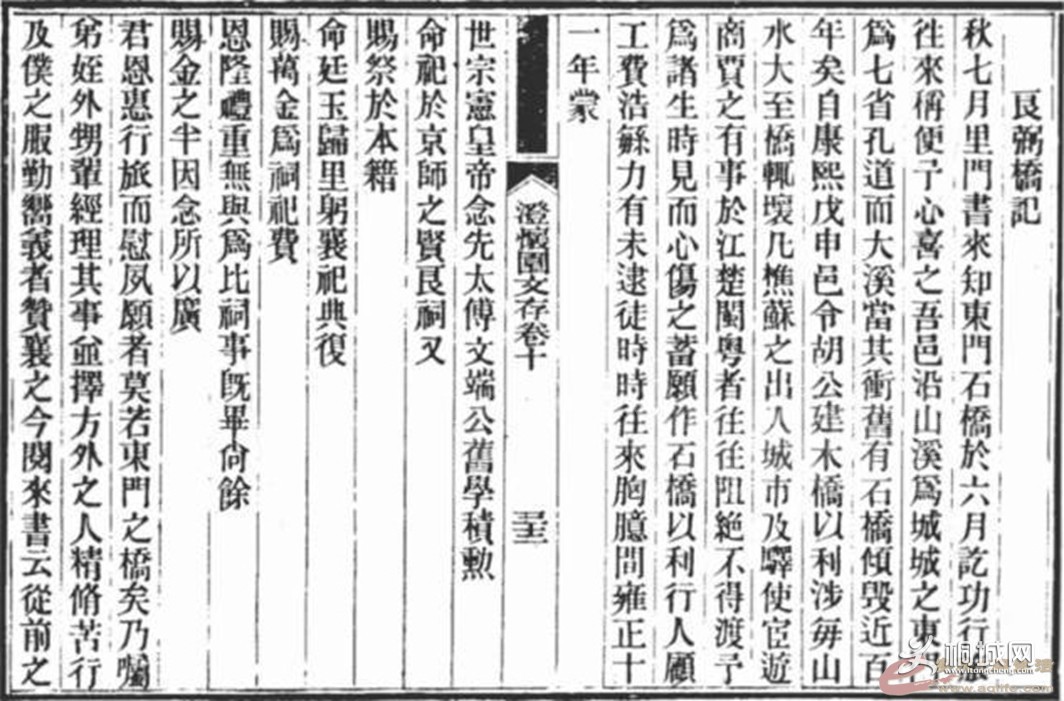 良弼橋記
秋七月里門書來知東門石橋於六月訖功行旅
徃來稱便予心喜之吾邑沿山溪爲城城之東
爲七省孔道而大溪當其衝舊有石橋傾毀近百
年矣自康熙戊申邑令胡公建木橋以利涉每山
水大至橋輒壞凡樵蘇之出入城市及驛使宦遊
商賈之有事於江楚閩粤者往往阻絶不得渡予
爲諸生時見而心傷之蓄願作石橋以利行人顧
工費浩繇力有未逮徒時時往來胸臆間雍正十
一年蒙
澄懷園文存卷十
世宗憲皇帝念先太傅文端公舊學積勲
命祀於京師之賢良祠又
賜祭於本籍
命廷玉歸里躬襄祀典復
賜萬金爲祠祀費
恩隆禮重無與爲比祠事旣畢尙餘
賜金之半因念所以廣
君恩惠行旅而慰夙願者莫若東門之橋矣乃囑
弟姪外甥輩經理其事並擇方外之人精脩苦行
及僕之服勤嚮義者贊襄之今閱來書云從前之
桐城网